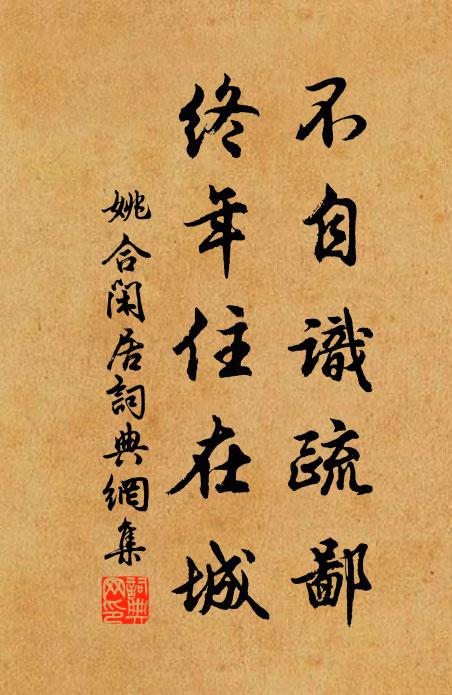 不自識疏鄙
終年住在城
姚合閑居詞典網集
詞典网印